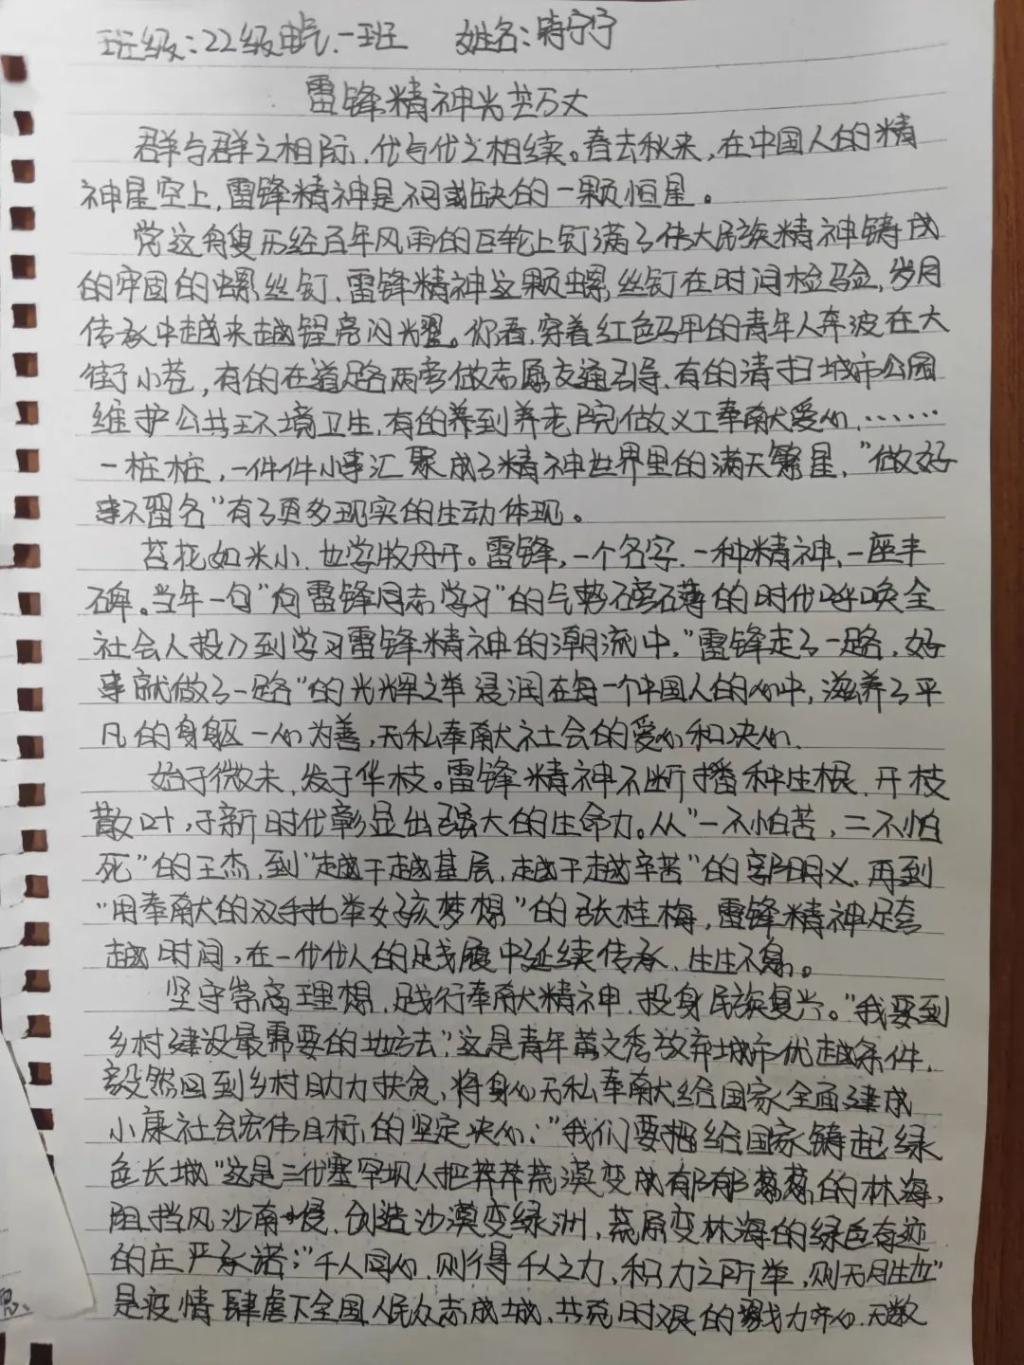 班级:22级电气一班 姓名:宁宁
雷锋精神光芒万丈
群与群之相际,代与代之相续。春去秋来,在中国人的精
神星空上,雷锋精神是不可或缺的一颗恒星。
党这艘历经百年风雨的巨轮上钉满了伟大民族精神铸成
的牢固的螺丝钉,雷锋精神这颗螺丝钉在时间检验,岁月
传承中越来越锃亮闪耀。你看,穿着红色马甲的青年人奔波在大
街小巷,有的在道路两旁做志愿交通引导,有的清扫城市公园
维护公共环境卫生,有的养到养老院做义工奉献爱心,……
一桩桩,一件件小事汇聚成了精神世界里的满天繁星,"做好
事不留名"有了更多现实的生动体现。
苔花如米小,也学牧丹开。雷锋,一个名字,一种精神,一座丰
碑。当年一句"向雷锋同志学习"的气势磅礴的时代呼唤全
社会人投入到学习雷锋精神的潮流中,"雷锋走了一路,好
事就做了一路"的光辉之举浸润在每一个中国人的心中,滋养了平
凡的身躯一心为善,无私奉献社会的爱心和决心.
始于微末,发于华枝。雷锋精神不断播种生根,开枝
散叶,于新时代彰显出强大的生命力。从"一不怕苦,二不怕
死"的王杰,到"越干越基层,越干越辛苦"的郭明义,再到
"用奉献的双手托举女孩梦想"的张桂梅,雷锋精神跨
越时间,在一代代人的践履中延续传承,生生不息。
坚守崇高理想,践行奉献精神,投身民族复兴。"我要到
乡村建设最需要的地方去"这是青年黄文秀放弃城市优越条件,
毅然回到乡村助力扶贫,将身心无私奉献给国家全面建成
小康社会宏伟目标的坚定决心;"我们要把给国家铸起绿
色长城"这是三代塞罕坝人把莽莽荒漠变成郁郁葱葱的林海,
阻挡风沙南侵,创造沙漠变绿洲,荒原变林海的绿色奇迹
的庄严承诺;"千人同心,则得千人之力,积力之所举,则无胜也"
是疫情肆虐下全国人民众志成城,共克时艰的戮力齐心,无数